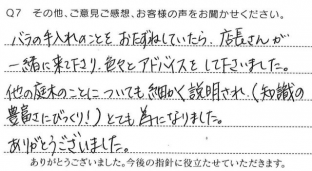 Q7 その他、ご意見ご感想、お客様の声をお聞かせください。
バラの手入れのことをおたずねしていたら、店長さんが
一緒に来て下さり、色々とアドバイスをして下さいました。
他の庭木のことについても細かく説明され、(知識の
豊富さにびっくり!)とても為になりました。
ありがとうございました。
ありがとうございました。今後の指針に役立たせていただきます。